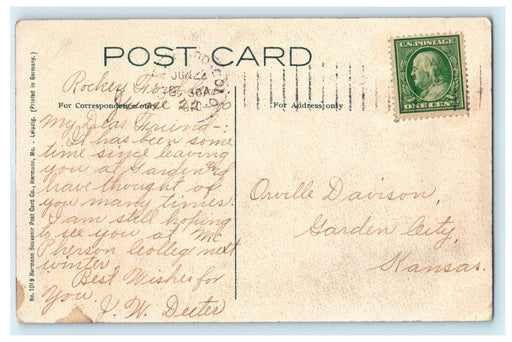 POST CARD
U.S. POSTAGE
ONE CENT
JUN 22
For Correspondence only
For Address only
Rocky Ford
June 22
My Dear Friend—:
It has been some
time since leaving
you at Garden &
have thought of
you many times.
I am still hoping
to see you at Mc
Pherson College next
winter.
Best Wishes for
You.
J. W. Deeter
Orville Davison,
Garden City,
Kansas.
No. 1019 Hermann Souvenir Post Card Co., Hermann, Mo. - Leipzig. (Printed in Germany.)